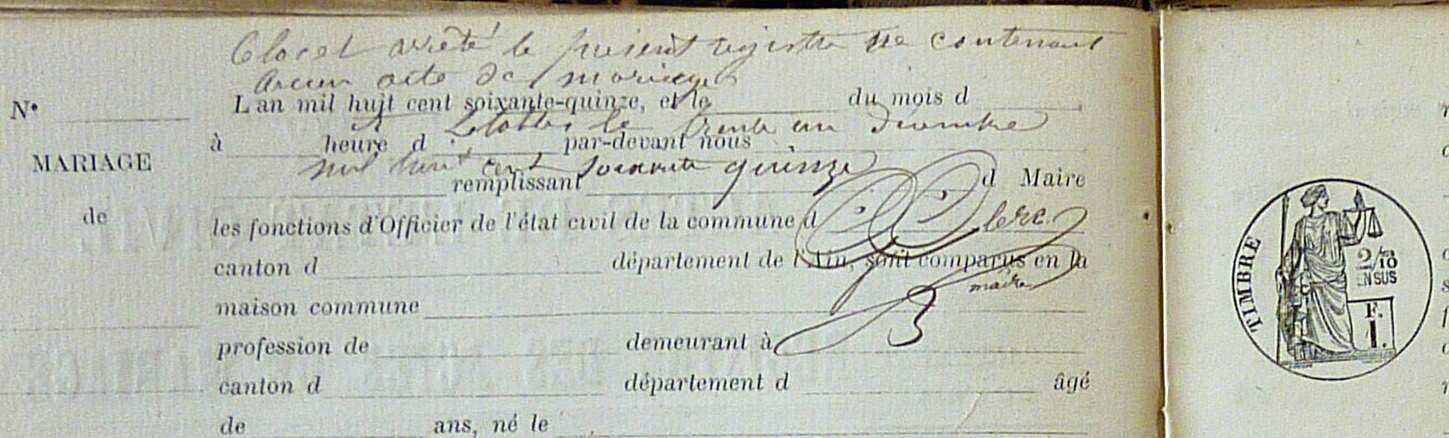 Clos et arrêté le présent registre ne contenant
aucun acte de mariage
L'an mil huit cent soixante-quinze, et le du mois d
N°
à le trente un décembre
à heure d par-devant nous
MARIAGE
mil huit cent soixante quinze
remplissant d Maire
de
les fonctions d'Officier de l'état civil de la commune d
canton d département de l'Ain, sont comparus en la
maire
maison commune
profession de demeurant à
canton d département d âgé
de ans, né le
TIMBRE
2/10
EN SUS
F.
1.